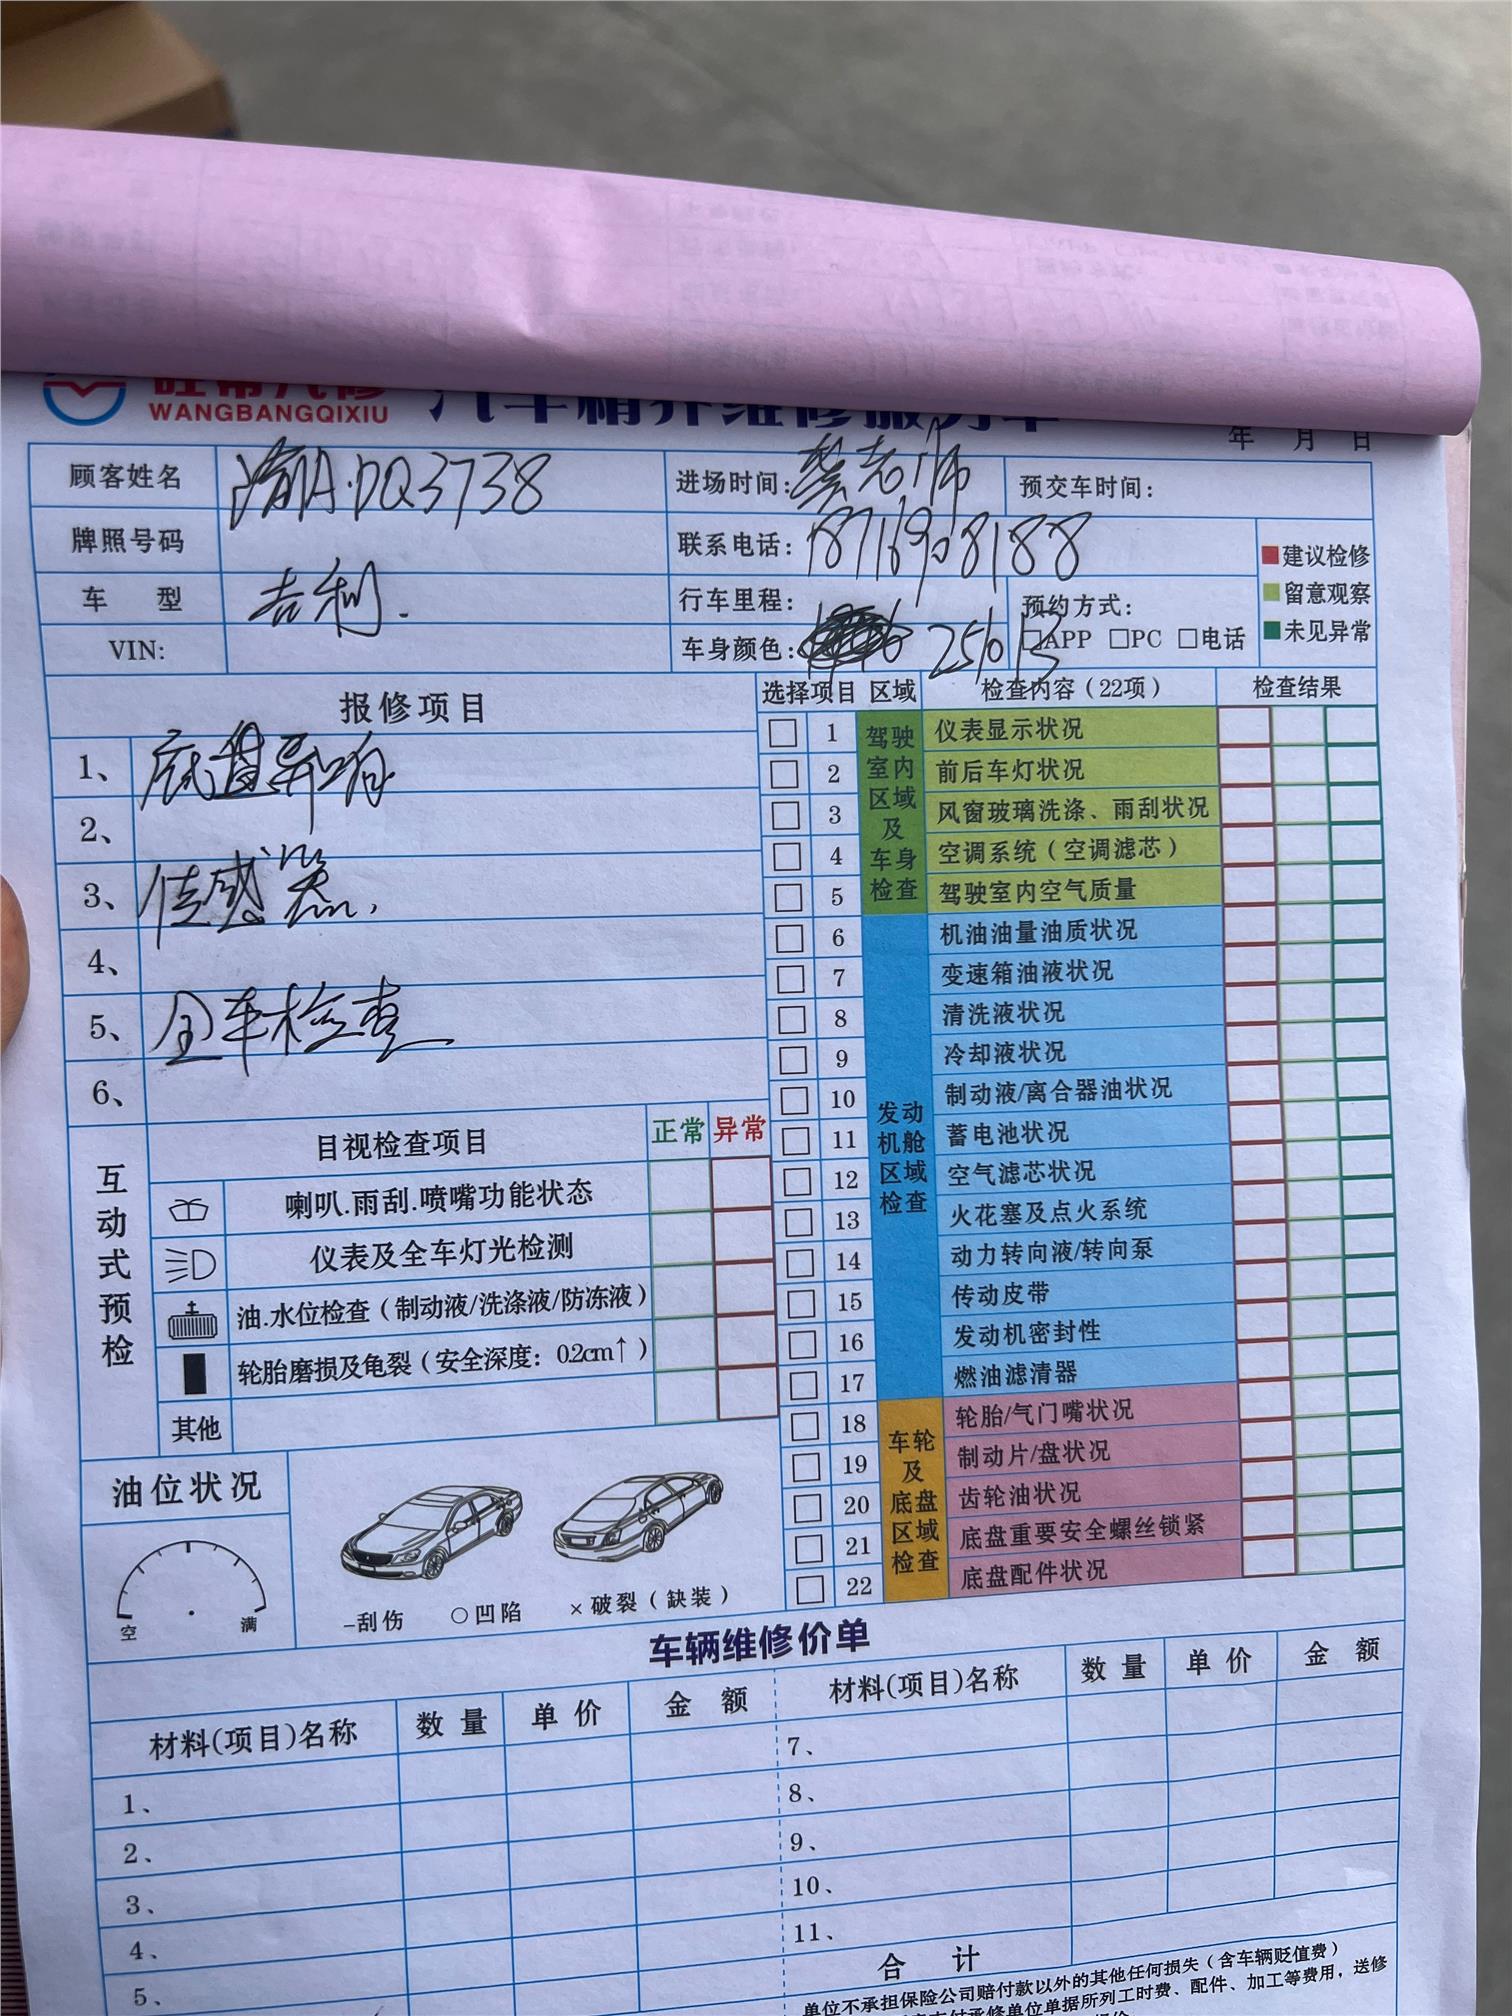 旺帮汽修
WANGBANGQIXIU
汽车精养维修服务单
年 月 日
顾客姓名 渝A·DQ3738 进场时间: 预交车时间:
牌照号码 联系电话: 18716908188
车 型 吉利. 行车里程: 预约方式:
VIN: 车身颜色: 251013 □APP □PC □电话
建议检修
留意观察
未见异常
报修项目
1、底盘异响
2、
3、传感器,
4、
5、全车检查
6、
选择项目 区域 检查内容(22项) 检查结果
驾驶室内区域及车身检查
1 仪表显示状况
2 前后车灯状况
3 风窗玻璃洗涤、雨刮状况
4 空调系统(空调滤芯)
5 驾驶室内空气质量
发动机舱区域检查
6 机油油量油质状况
7 变速箱油液状况
8 清洗液状况
9 冷却液状况
10 制动液/离合器油状况
11 蓄电池状况
12 空气滤芯状况
13 火花塞及点火系统
14 动力转向液/转向泵
15 传动皮带
16 发动机密封性
17 燃油滤清器
车轮及底盘区域检查
18 轮胎/气门嘴状况
19 制动片/盘状况
20 齿轮油状况
21 底盘重要安全螺丝锁紧
22 底盘配件状况
互动式预检
目视检查项目 正常 异常
喇叭.雨刮.喷嘴功能状态
仪表及全车灯光检测
油.水位检查(制动液/洗涤液/防冻液)
轮胎磨损及龟裂(安全深度: 0.2cm↑)
其他
油位状况
空 满
-刮伤 ○凹陷 ×破裂(缺装)
车辆维修价单
材料(项目)名称 数量 单价 金额 材料(项目)名称 数量 单价 金额
1、 7、
2、 8、
3、 9、
4、 10、
5、 11、
合 计
单位不承担保险公司赔付款以外的其他任何损失(含车辆贬值费)
承修单位单据所列工时费、配件、加工等费用，送修